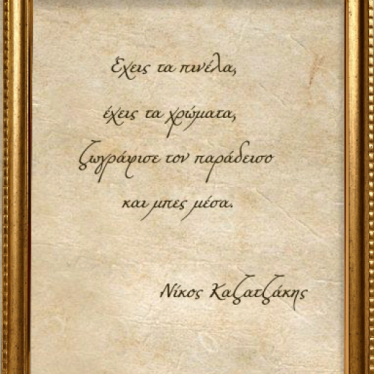 Εχεις τα πινέλα,
έχεις τα χρώματα,
ζωγράφισε τον παράδεισο
και μπες μέσα.
Νίκος Καζατζάκης